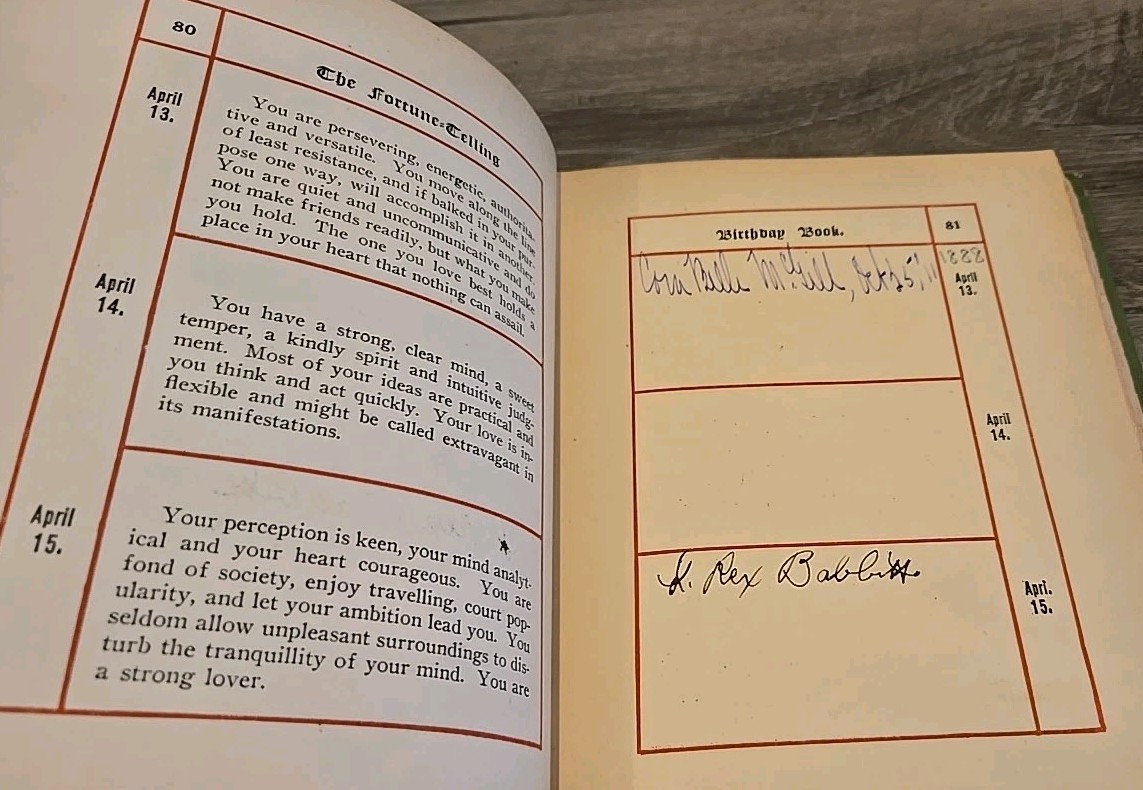 80
The Fortune-Telling
April
13.
You are persevering, energetic, authorita-
tive and versatile. You move along the line
of least resistance, and if balked in your pur-
pose one way, will accomplish it in another.
You are quiet and uncommunicative and do
not make friends readily, but what you make
you hold. The one you love best holds a
place in your heart that nothing can assail.
April
14.
You have a strong, clear mind, a sweet
temper, a kindly spirit and intuitive judg-
ment. Most of your ideas are practical and
you think and act quickly. Your love is in-
flexible and might be called extravagant in
its manifestations.
April
15.
Your perception is keen, your mind analyt-
ical and your heart courageous. You are
fond of society, enjoy travelling, court pop-
ularity, and let your ambition lead you. You
seldom allow unpleasant surroundings to dis-
turb the tranquillity of your mind. You are
a strong lover.
Birthday Book.
81
Cora Belle McGill, Oct 25, 1888
April
13.
April
14.
Rex Babbitt
Apri.
15.